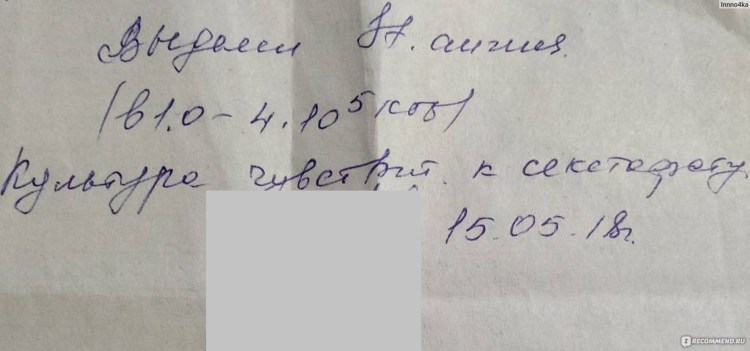 Innno4ka
Выделен
(в 1.0 - 4.10⁵ КОЕ)
Культура чувствит. к секстафагу.
15.05.18г.
RECOMMEND.RU